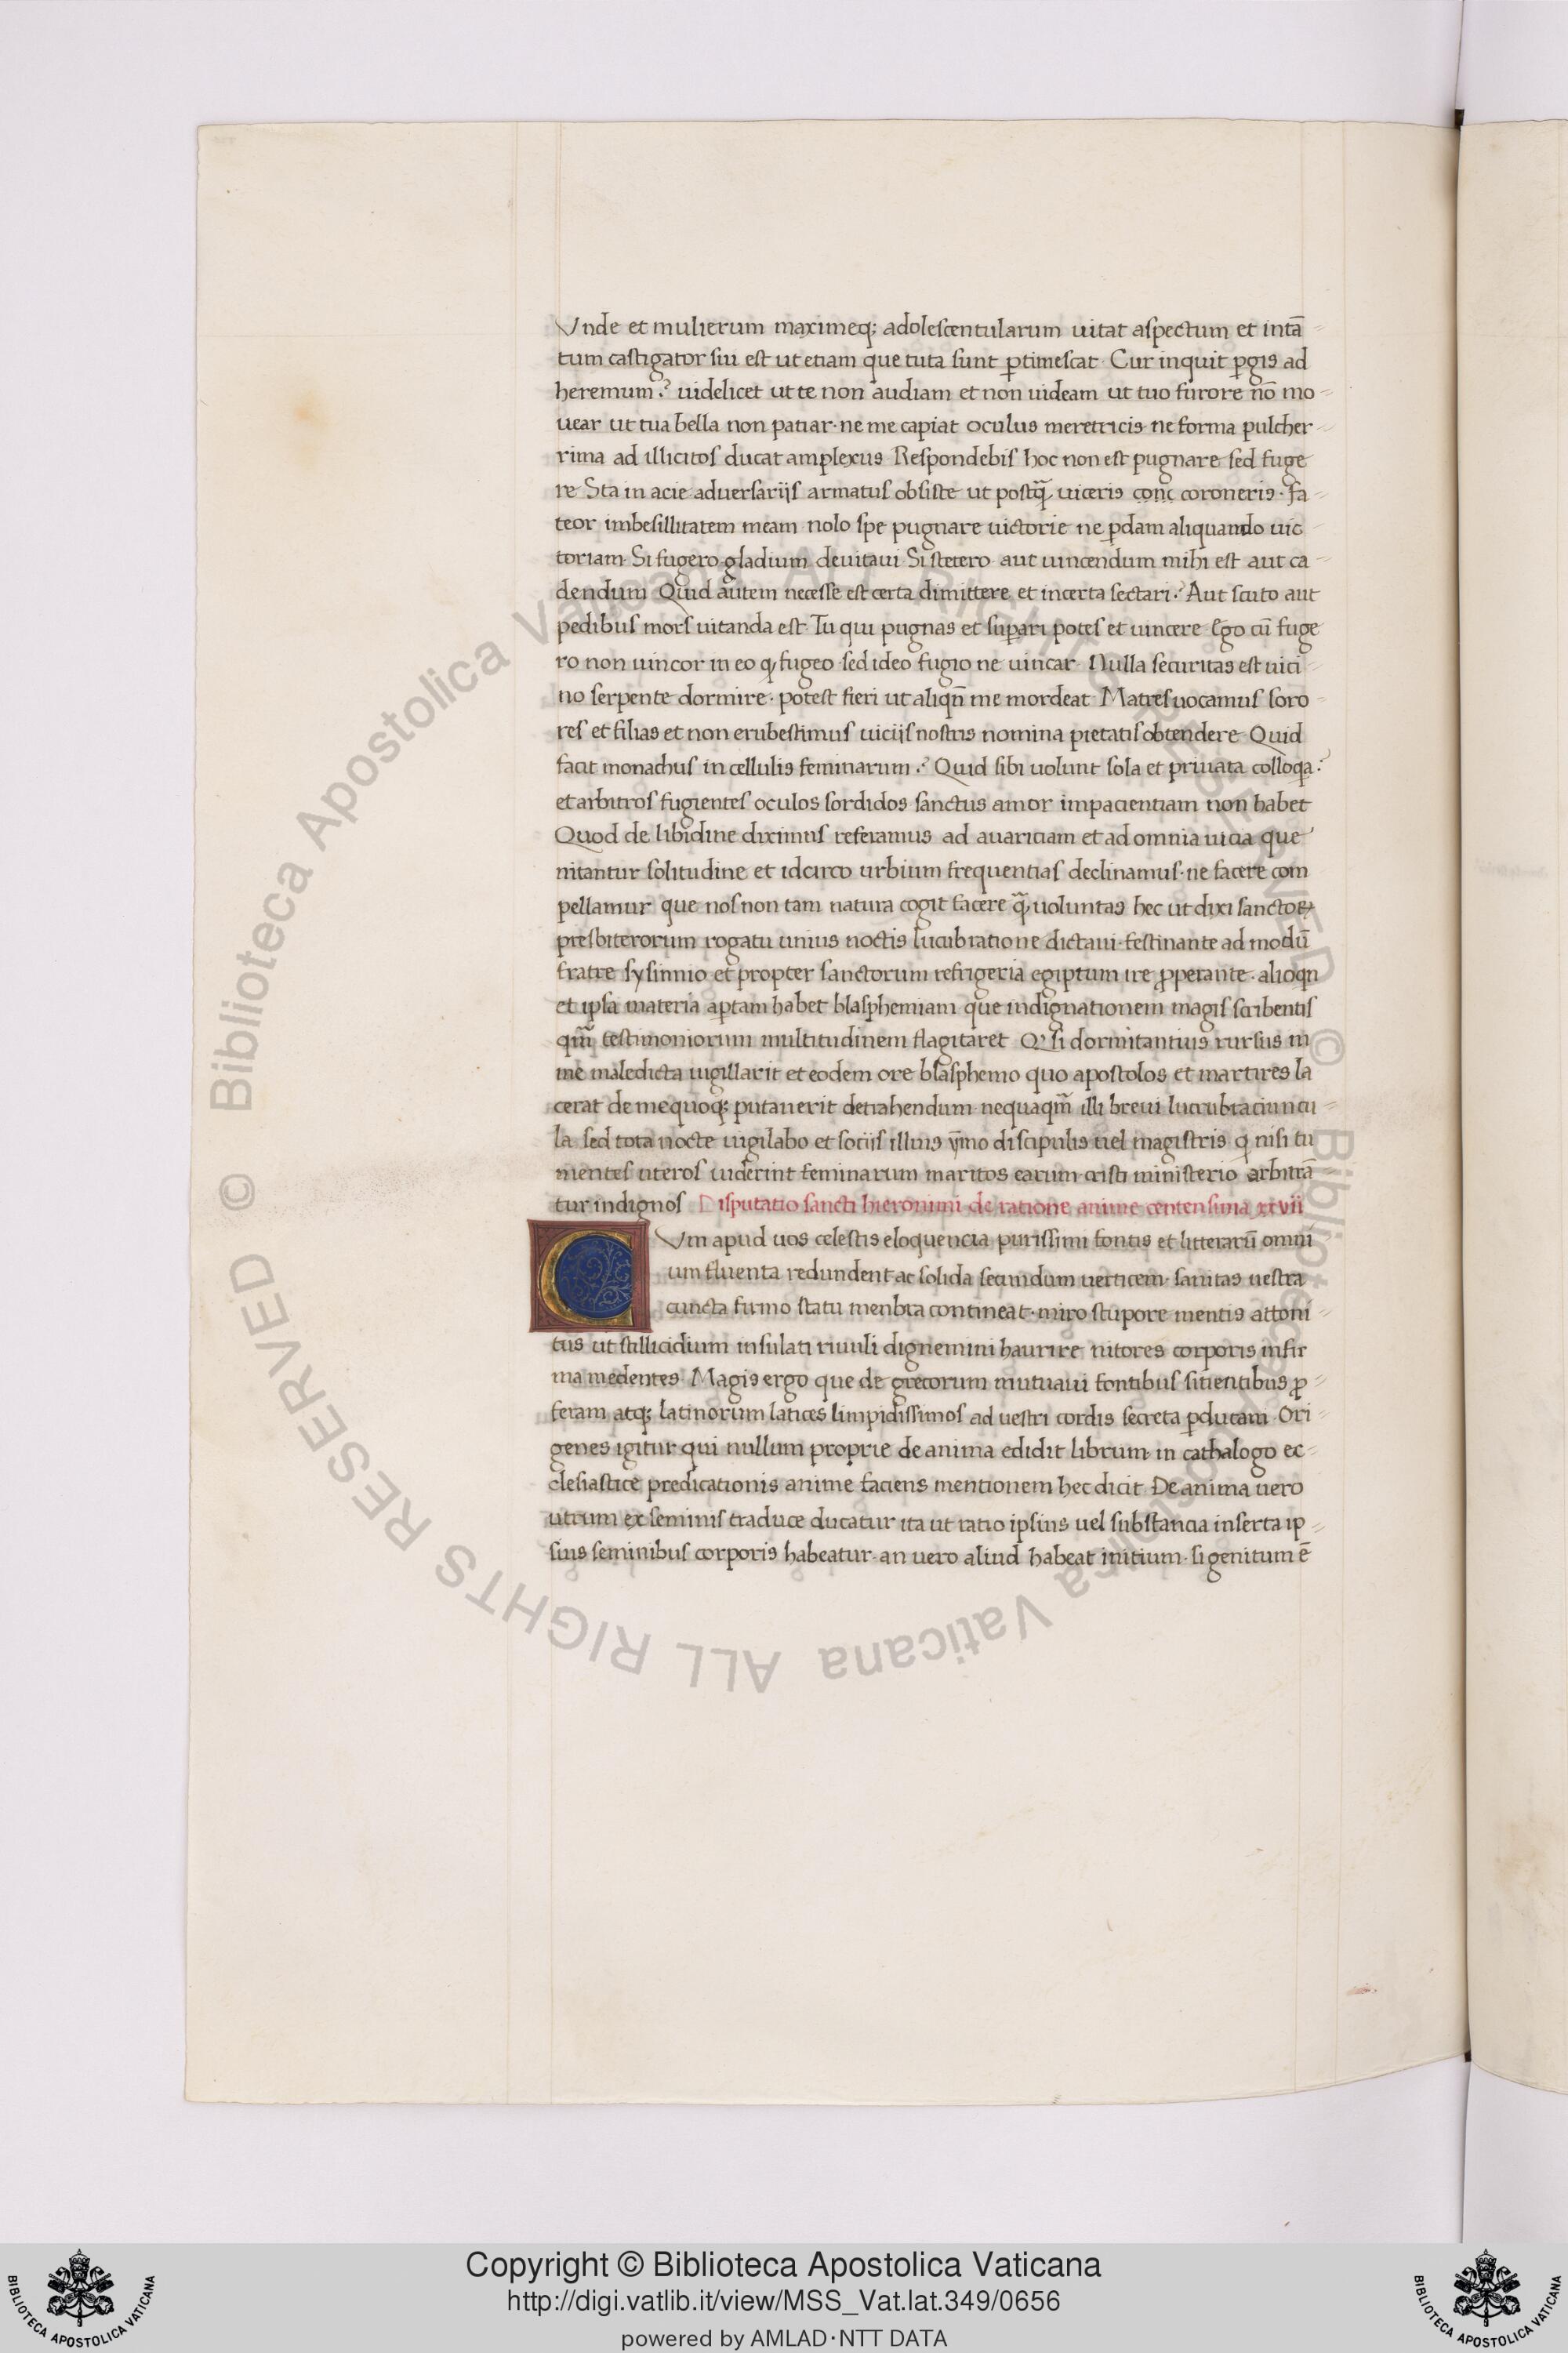 Vnde et mulierum maximeq; adolescentularum uitat aspectum et intā
tum castigator sui est ut etiam que tuta sunt ꝑtimescat · Cur inquit ꝑgis ad
heremum ? uidelicet ut te non audiam et non uideam ut tuo furore nō mo
uear ut tua bella non patiar · ne me capiat oculus meretricis ne forma pulcher
rima ad illicitos ducat amplexus Respondebis hoc non est pugnare sed fuge
re Sta in acie aduersarijs armatus obsiste ut postq̄ uiceris coroneris · fa
teor imbesillitatem meam nolo spe pugnare uictorie ne ꝑdam aliquando uic
toriam · Si fugero gladium deuitaui Si stetero aut uincendum mihi est aut ca
dendum Quid autem necesse est certa dimittere et incerta sectari ? Aut scuto aut
pedibus mors uitanda est · Tu qui pugnas et suꝑari potes et uincere Ego cū fuge
ro non uincor in eo ꝙ fugeo sed ideo fugio ne uincar · Nulla securitas est uici
no serpente dormire · potest fieri ut aliqn̄ me mordeat Matres uocamus soro
res et filias et non erubescimus uicijs nostris nomina pietatis obtendere Quid
facit monachus in cellulis feminarum ? Quid sibi uolunt sola et priuata colloqa ?
et arbitros fugientes oculos sordidos sanctus amor impacientiam non habet
Quod de libidine diximus referamus ad auariciam et ad omnia uicia que
uitantur solitudine et idcirco urbium frequentias declinamus · ne facere com
pellamur que nos non tam natura cogit facere q̄ uoluntas hec ut dixi sanctoꝝ
presbiterorum rogatu unius noctis lucubratione dictaui · festinante ad modū
fratre sysinnio et propter sanctorum refrigeria egiptum ire ꝓperante · alioqn
et ipsa materia aptam habet blasphemiam que indignationem magis scribentis
qm̄ testimoniorum multitudinem flagitaret Q' si dormitantius rursus in
me maledicta uigillarit et eodem ore blasphemo quo apostolos et martires la
cerat de me quoq; putauerit detrahendum nequaqm̄ illi breui lucrubraciuncu
la sed tota nocte uigilabo et socijs illius ȳmo discipulis uel magistris q nisi tu
mentes uteros uiderint feminarum maritos earum cristi ministerio arbitrā
tur indignos Disputatio sancti hieronimi de ratione anime centensima xxvii
CVm apud uos celestis eloquencia purissimi fontis et litterarū omni
um fluenta redundent ac solida secundum uerticem sanitas uestra
cuncta firmo statu menbra contineat · miro stupore mentis attoni
tus ut stillicidium insulati riuuli dignemini haurire nitores corporis infir
ma medentes Magis ergo que de grecorum mutuaui fontibus sitientibus ꝓ
feram atq; latinorum latices limpidissimos ad uestri cordis secreta ꝑducam Ori
genes igitur qui nullum proprie de anima edidit librum in cathalogo ec
clesiastice predicationis anime faciens mentionem hec dicit De anima uero
utrum ex seminis traduce ducatur ita ut ratio ipsius uel substancia inserta ip
sius seminibus corporis habeatur an uero aliud habeat initium · si genitum ē
© Biblioteca Apostolica Vaticana ALL RIGHTS RESERVED © Biblioteca Apostolica Vaticana ALL RIGHTS RESERVED
Copyright © Biblioteca Apostolica Vaticana
http://digi.vatlib.it/view/MSS_Vat.lat.349/0656
powered by AMLAD·NTT DATA
BIBLIOTECA APOSTOLICA VATICANA
BIBLIOTECA APOSTOLICA VATICANA